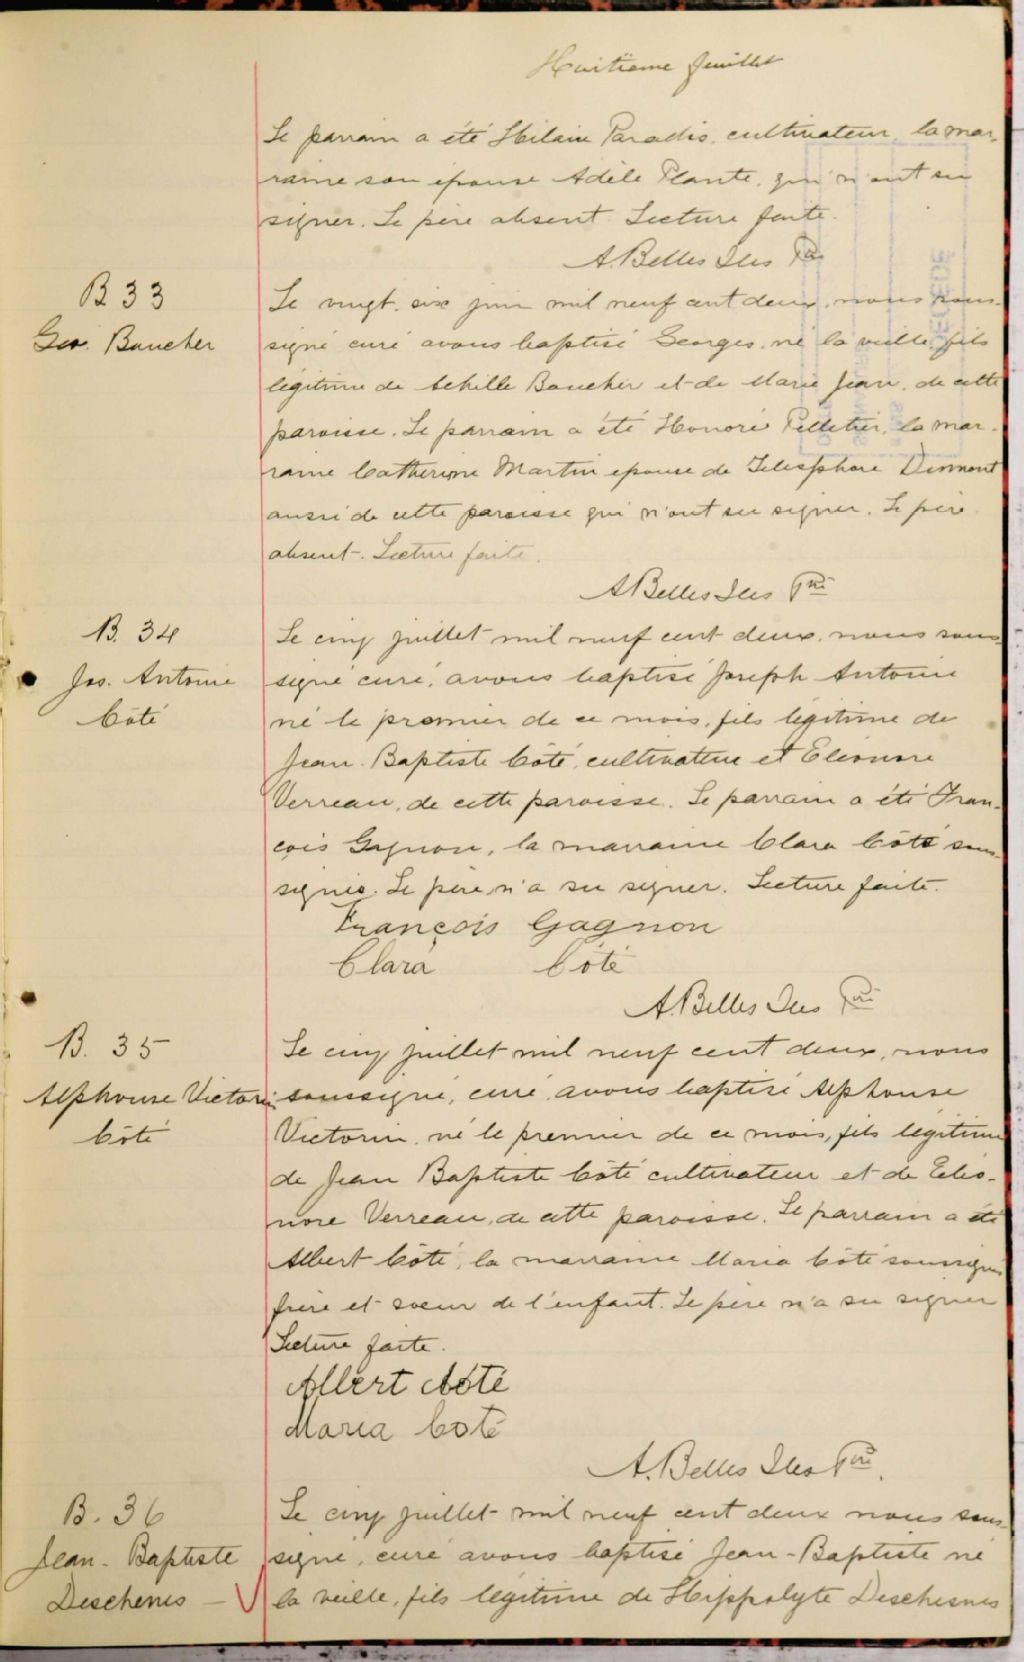 Huitième feuillet
Le parrain a été Hilaire Paradis, cultivateur, la mar-
raine son épouse Adèle Plante, qui n'ont su
signer. Le père absent. Lecture faite.
A. Belles Iles Ptre
B 33
Geo. Boucher
Le vingt-six juin mil neuf cent deux, nous sous-
signé curé avons baptisé Georges, né la veille, fils
légitime de Achille Boucher et de Marie Jean, de cette
paroisse. Le parrain a été Honoré Pelletier, la mar-
raine Catherine Martin épouse de Télesphore Dumont
aussi de cette paroisse qui n'ont su signer. Le père
absent. Lecture faite.
A Belles Iles Ptre
B. 34
Jos. Antoine
Côté
Le cinq juillet mil neuf cent deux, nous sous-
signé curé, avons baptisé Joseph Antoine
né le premier de ce mois, fils légitime de
Jean-Baptiste Côté, cultivateur et Eléonore
Verreau, de cette paroisse. Le parrain a été Fran-
çois Gagnon, la marraine Clara Côté sous-
signés. Le père n'a su signer. Lecture faite.
François Gagnon
Clara Côté
A. Belles Iles Ptre
B. 35
Alphonse Victorin
Côté
Le cinq juillet mil neuf cent deux, nous
soussigné, curé, avons baptisé Alphonse
Victorin, né le premier de ce mois, fils légitime
de Jean Baptiste Côté cultivateur et de Eléo-
nore Verreau, de cette paroisse. Le parrain a été
Albert Côté, la marraine Maria Côté soussignés
frère et soeur de l'enfant. Le père n'a su signer
Lecture faite.
Albert Côté
Maria Coté
A. Belles Iles Ptre.
B. 36
Jean-Baptiste
Deschenes
Le cinq juillet mil neuf cent deux nous sous-
signé, curé avons baptisé Jean-Baptiste né
la veille, fils légitime de Hippolyte Deschesnes